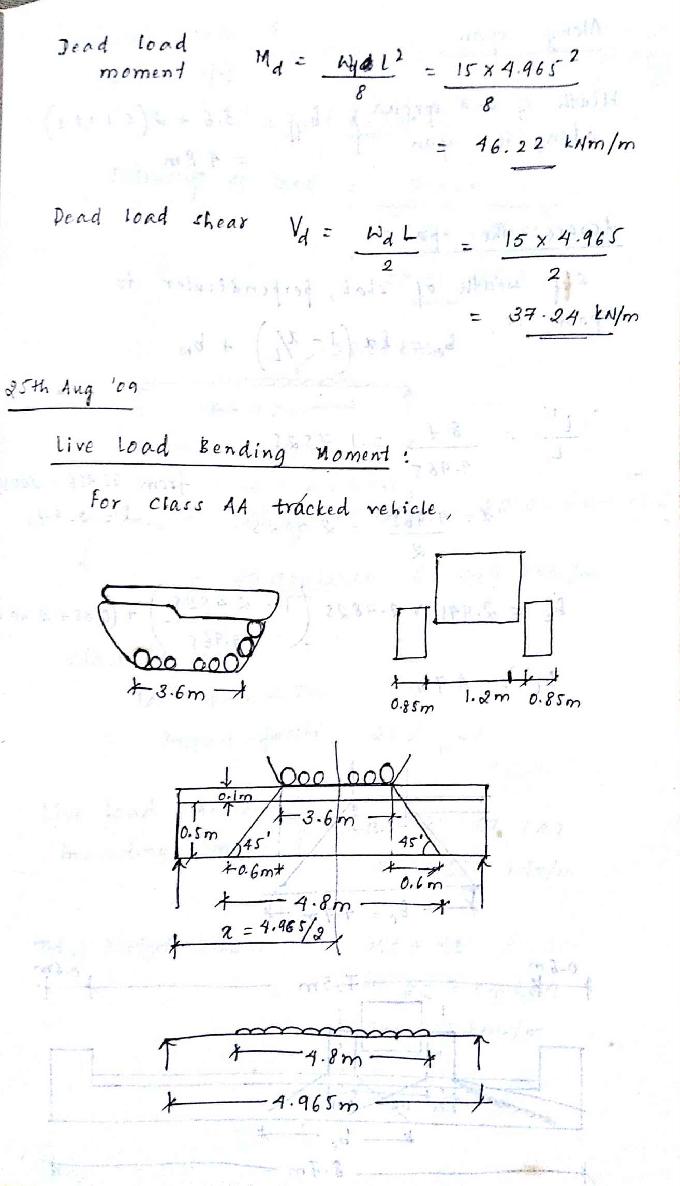 Dead load moment M_d = W_d L² / 8 = 15 x 4.965² / 8
= 46.22 kNm/m
Dead load shear V_d = W_d L / 2 = 15 x 4.965 / 2
= 37.24 kN/m
25th Aug '09
Live Load Bending Moment :
For Class AA tracked vehicle,
3.6m
0.85m 1.2m 0.85m
0.1m
3.6m
0.5m
45° 45°
0.6m 0.6m
4.8m
x = 4.965/2
4.8m
4.965m